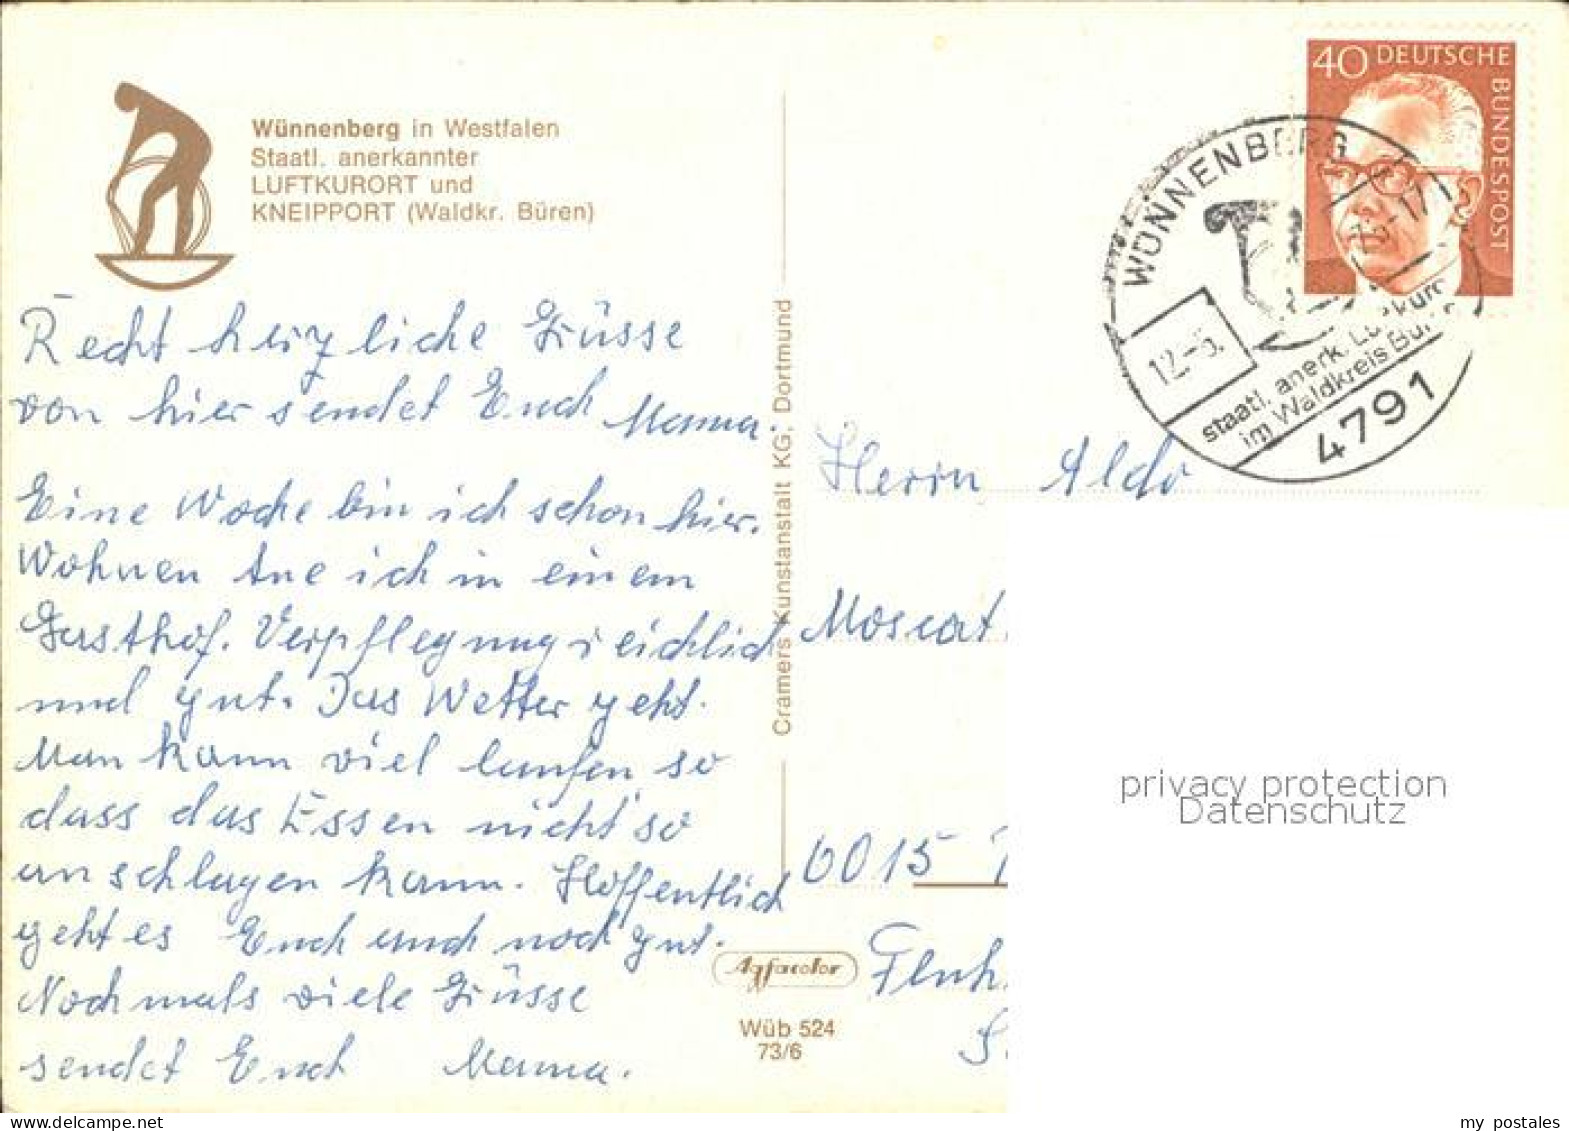 Wünnenberg in Westfalen
Staatl. anerkannter
LUFTKURORT und
KNEIPPORT (Waldkr. Büren)
Recht herzliche Grüsse
von hier sendet Euch Mamma.
Eine Woche bin ich schon hier.
Wohnen tue ich in einem
Gasthof. Verpflegung reichlich
und gut. Das Wetter geht.
Man kann viel laufen so
dass das Essen nicht so
anschlagen kann. Hoffentlich
geht es Euch auch noch gut.
Nochmals viele Grüsse
sendet Euch Mamma.
Cramers Kunstanstalt KG, Dortmund
Agfacolor
Wüb 524
73/6
40 DEUTSCHE
BUNDESPOST
WÜNNENBERG
12.-5.
staatl. anerk.
im Waldkreis Büren
4791
Herrn Aldo
Moscat
6015
privacy protection
Datenschutz
my postales